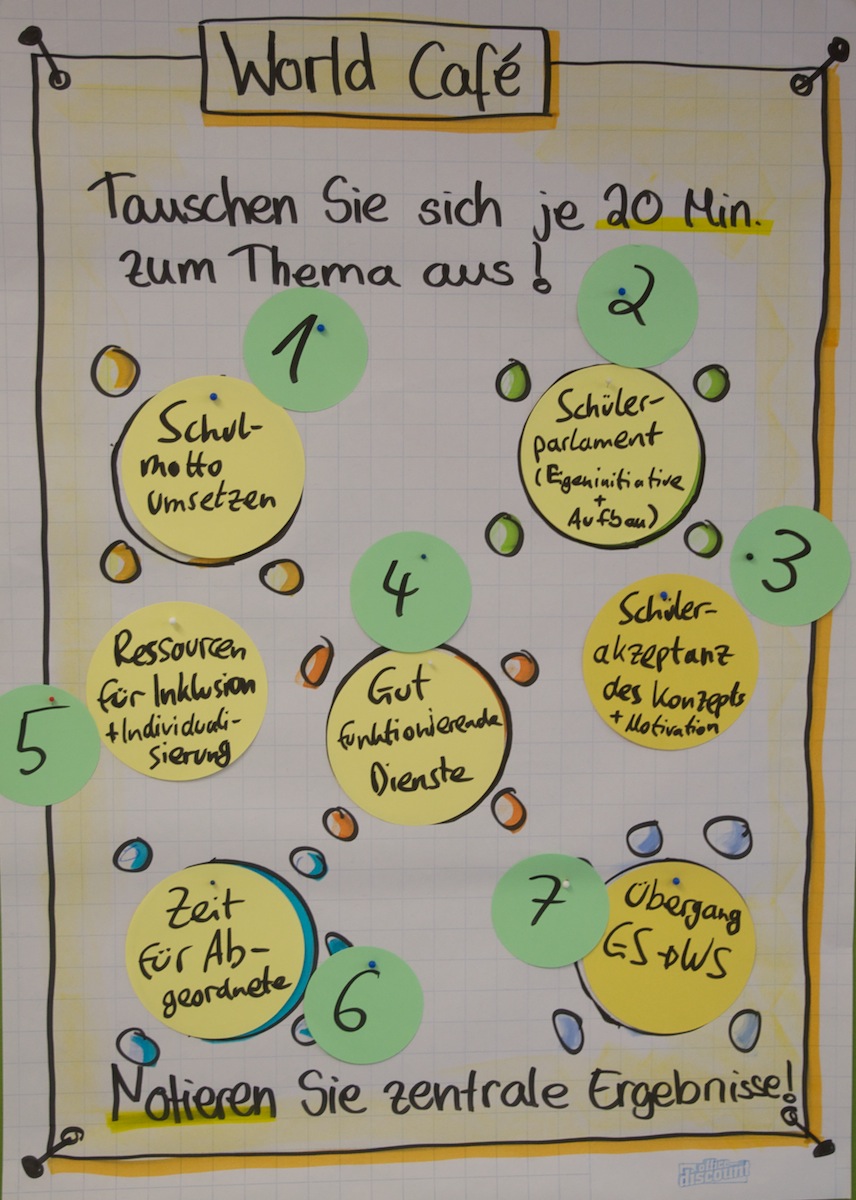 World Café
Tauschen Sie sich je 20 Min.
zum Thema aus!
1
Schul-
motto
umsetzen
2
Schüler-
parlament
(Eigeninitiative
+
Aufbau)
3
Schüler-
akzeptanz
des Konzepts
+ Motivation
4
Gut
funktionierende
Dienste
5
Ressourcen
für Inklusion
+ Individuali-
sierung
6
Zeit
für Ab-
geordnete
7
Übergang
GS→WS
Notieren Sie zentrale Ergebnisse!
office
discount